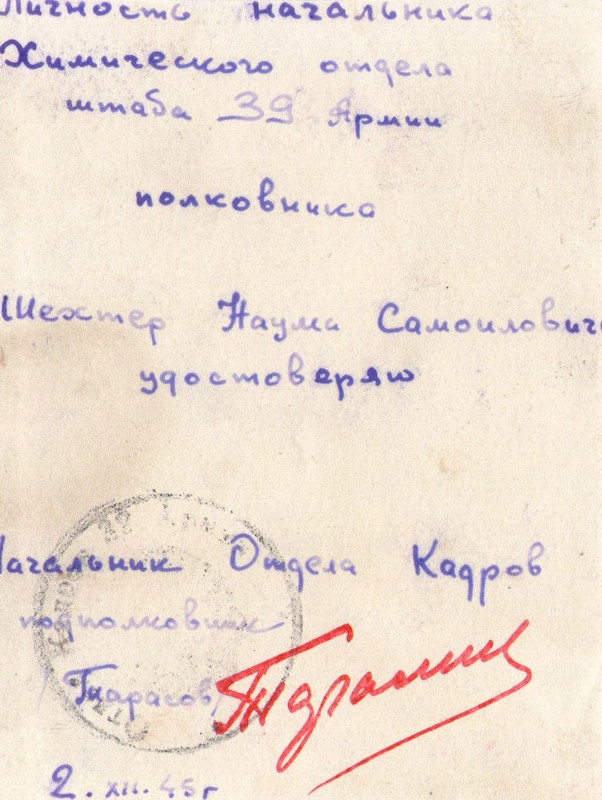 Личность начальника
Химического отдела
штаба 39 Армии
полковника
Шехтер Наума Самоилович
удостоверяю
Начальник Отдела Кадров
подполковник
/Тарасов/
2. XII. 45г